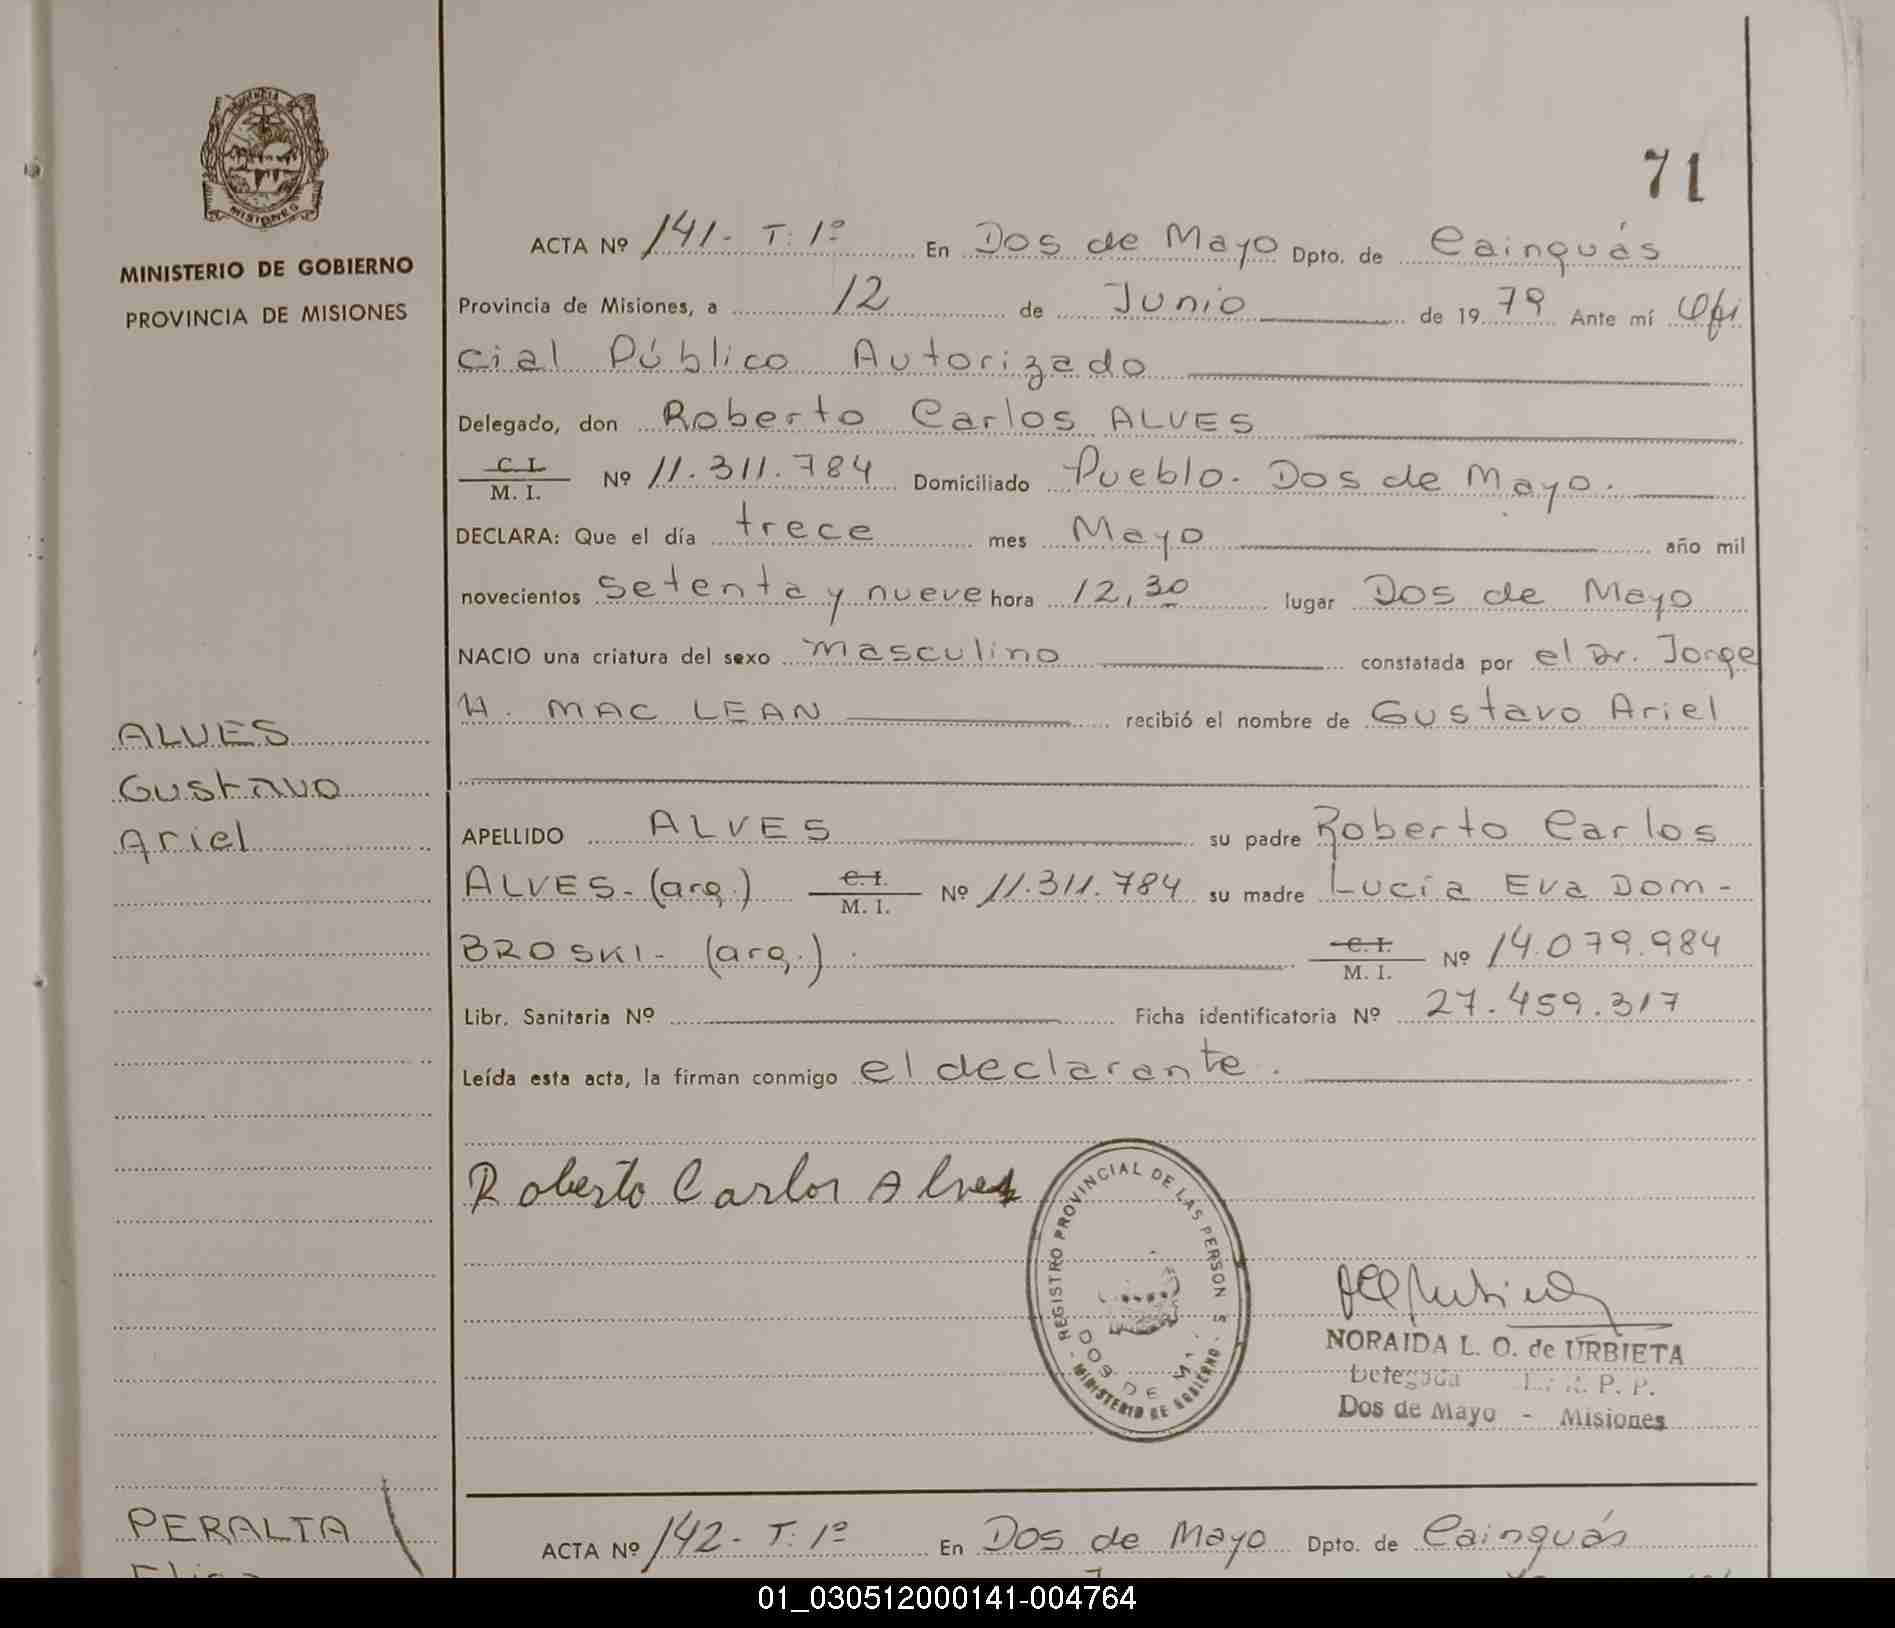 MISIONES
MINISTERIO DE GOBIERNO
PROVINCIA DE MISIONES
71
ACTA Nº 141- T: 1º En Dos de Mayo Dpto. de Cainguás
Provincia de Misiones, a 12 de Junio de 1979 Ante mí Ofi
cial Público Autorizado
Delegado, don Roberto Carlos ALVES
C. I. / M. I. Nº 11.311.784 Domiciliado Pueblo. Dos de Mayo.
DECLARA: Que el día trece mes Mayo año mil
novecientos setenta y nueve hora 12,30 lugar Dos de Mayo
NACIO una criatura del sexo masculino constatada por el Dr. Jorge
H. MAC LEAN recibió el nombre de Gustavo Ariel
ALVES
Gustavo
Ariel
APELLIDO ALVES su padre Roberto Carlos
ALVES- (arg.) C. I. / M. I. Nº 11.311.784 su madre Lucía Eva DOM-
BROSKI- (arg.) C. I. / M. I. Nº 14.079.984
Libr. Sanitaria Nº Ficha identificatoria Nº 27.459.317
Leída esta acta, la firman conmigo el declarante.
Roberto Carlos Alves
REGISTRO PROVINCIAL DE LAS PERSON S
DOS DE MA
MINISTERIO DE GOBIERNO
NORAIDA L. O. de URBIETA
Delegada R. P. P.
Dos de Mayo - Misiones
PERALTA
ACTA Nº 142- T: 1º En Dos de Mayo Dpto. de Cainguás
01_030512000141-004764